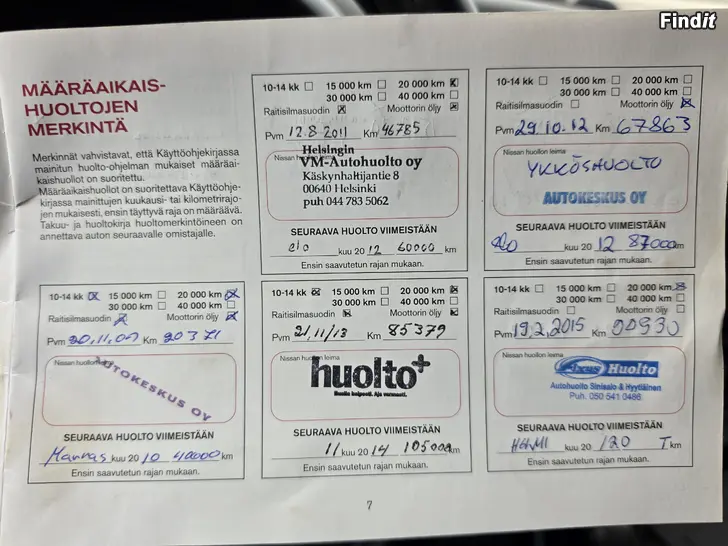 Findit
MÄÄRÄAIKAIS-
HUOLTOJEN
MERKINTÄ
Merkinnät vahvistavat, että Käyttöohjekirjassa
mainitun huolto-ohjelman mukaiset määräai-
kaishuollot on suoritettu.
Määräaikaishuollot on suoritettava Käyttöohje-
kirjassa mainittujen kuukausi- tai kilometrirajo-
jen mukaisesti, ensin täyttyvä raja on määräävä.
Takuu- ja huoltokirja huoltomerkintöineen on
annettava auton seuraavalle omistajalle.
10-14 kk 15 000 km 20 000 km
30 000 km 40 000 km
Raitisilmasuodin Moottorin öljy
Pvm 12.8 2011 Km 46785
Nissan huollon leima
Helsingin
VM-Autohuolto oy
Käskynhaltijantie 8
00640 Helsinki
puh 044 783 5062
SEURAAVA HUOLTO VIIMEISTÄÄN
elo kuu 2012 60000 km
Ensin saavutetun rajan mukaan.
10-14 kk 15 000 km 20 000 km
30 000 km 40 000 km
Raitisilmasuodin Moottorin öljy
Pvm 29.10.12 Km 67863
Nissan huollon leima
YKKÖSHUOLTO
AUTOKESKUS OY
SEURAAVA HUOLTO VIIMEISTÄÄN
kuu 2012 87000 km
Ensin saavutetun rajan mukaan.
10-14 kk 15 000 km 20 000 km
30 000 km 40 000 km
Raitisilmasuodin Moottorin öljy
Pvm 20.11.09 Km 20371
Nissan huollon leima
AUTOKESKUS OY
SEURAAVA HUOLTO VIIMEISTÄÄN
Marras kuu 2010 40000 km
Ensin saavutetun rajan mukaan.
10-14 kk 15 000 km 20 000 km
30 000 km 40 000 km
Raitisilmasuodin Moottorin öljy
Pvm 21,11/13 Km 85379
Nissan huollon leima
huolto+
Huolla helposti. Aja varmasti.
SEURAAVA HUOLTO VIIMEISTÄÄN
11 kuu 2014 105000 km
Ensin saavutetun rajan mukaan.
10-14 kk 15 000 km 20 000 km
30 000 km 40 000 km
Raitisilmasuodin Moottorin öljy
Pvm 19.2.2015 Km
Nissan huollon leima
Huolto
Autohuolto Sinisalo & Hyytiäinen
Puh. 050 541 0486
SEURAAVA HUOLTO VIIMEISTÄÄN
kuu 20 120 T km
Ensin saavutetun rajan mukaan.
7